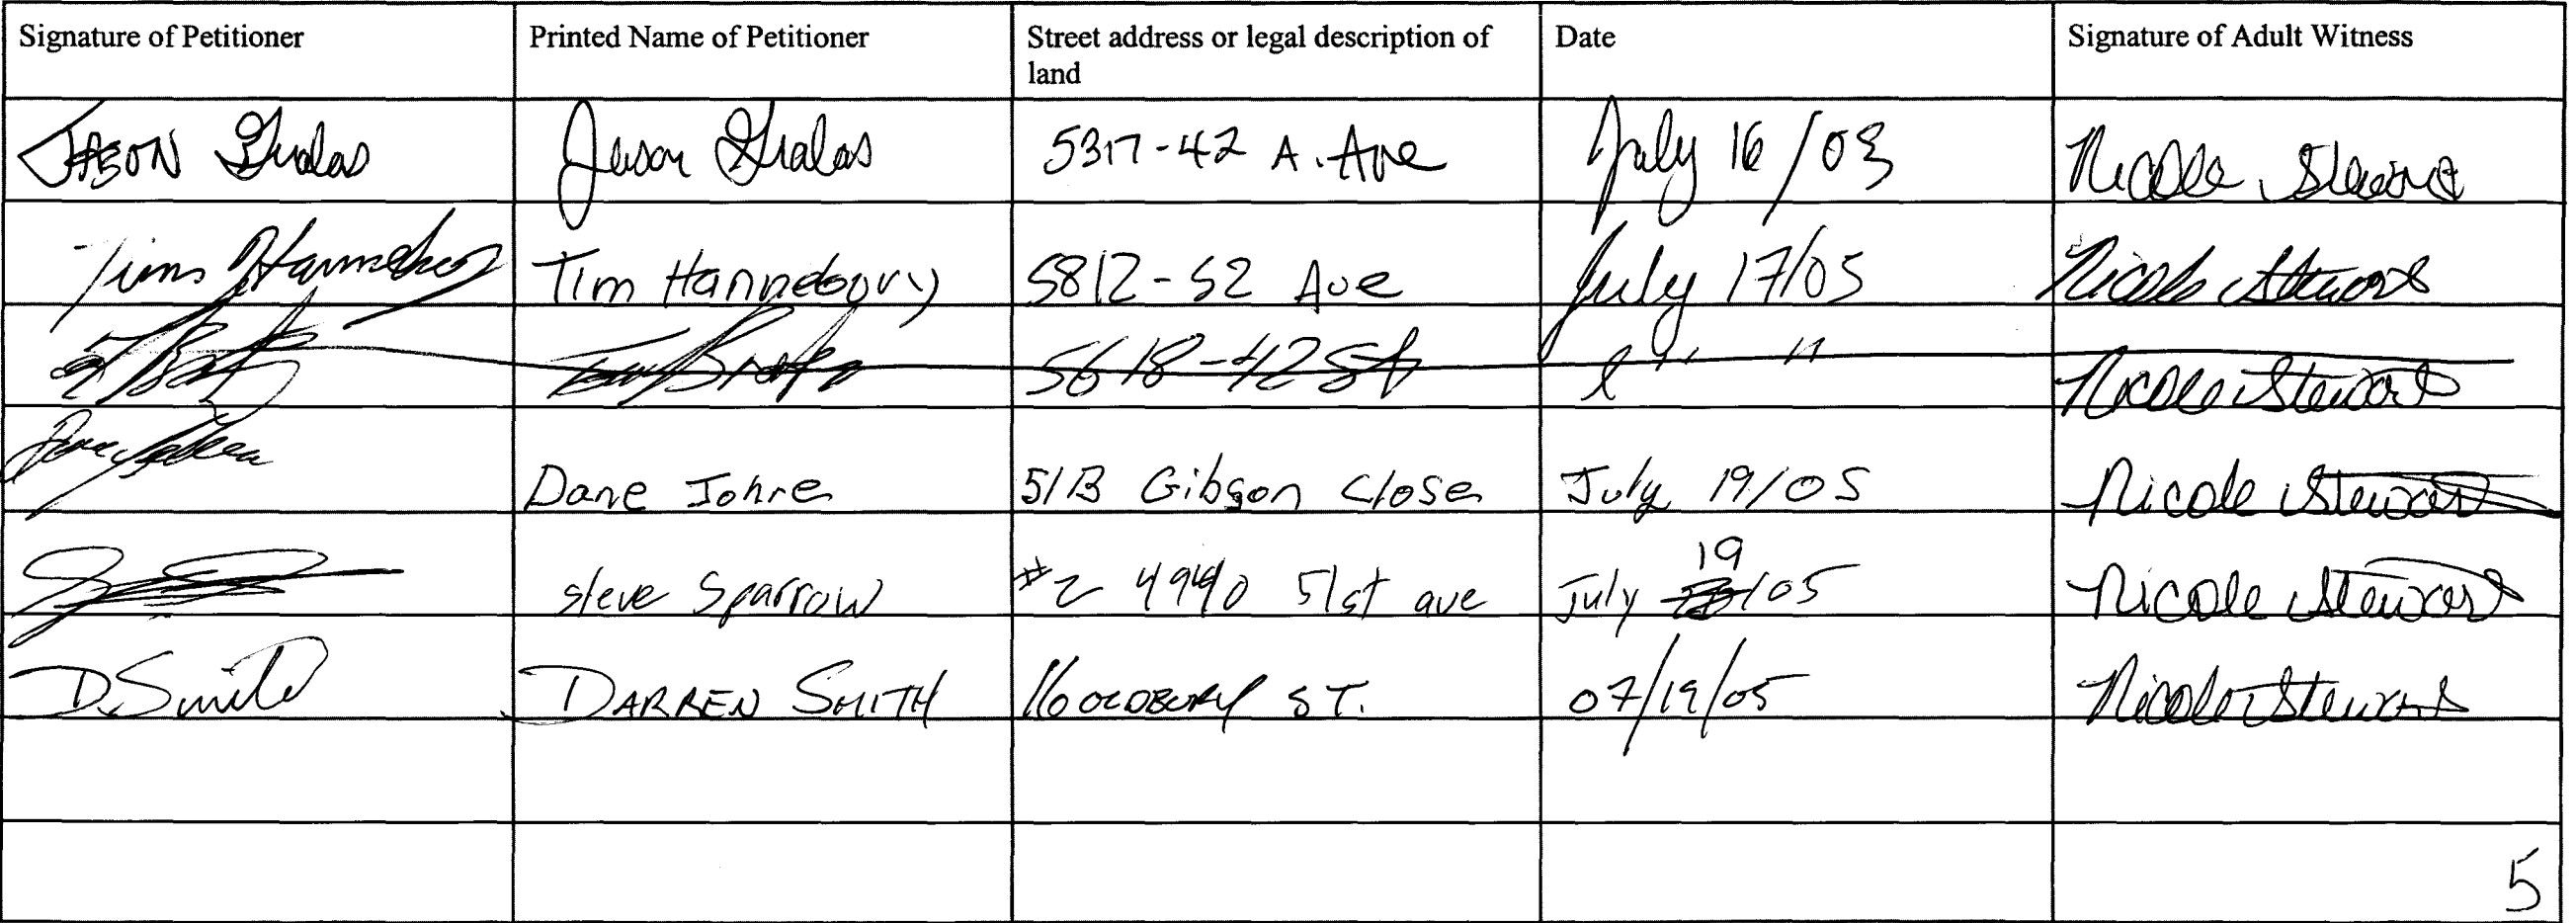 Signature of Petitioner Printed Name of Petitioner Street address or legal description of land Date Signature of Adult Witness
JASON Gralas Jason Gralas 5317-42 A. Ave July 16/05 Nicole Stewart
Tim Tim 5812-52 Ave July 17/05 Nicole Stewart
5618-42 St " " Nicole Stewart
Dane Johre 51B Gibson Close July 19/05 Nicole Stewart
Steve Sparrow #2 4940 51st ave July 19/05 Nicole Stewart
D. Smith DARREN SMITH 16 OLDBURY ST. 07/19/05 Nicole Stewart
5